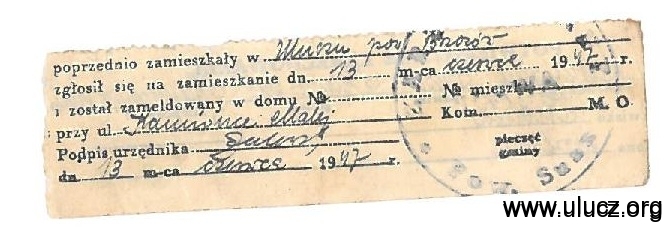 poprzednio zamieszkały w Uluczu pow Brzozów
zgłosił się na zamieszkanie dn. 13 m-ca czerwca 1947 r.
i został zameldowany w domu № № mieszk
przy ul. Kamionce Małej Kom. M. O
Podpis urzędnika
dn 13 m-ca czerwca 1947 r.
pieczęć
gminy
Pow. Susz
www.ulucz.org